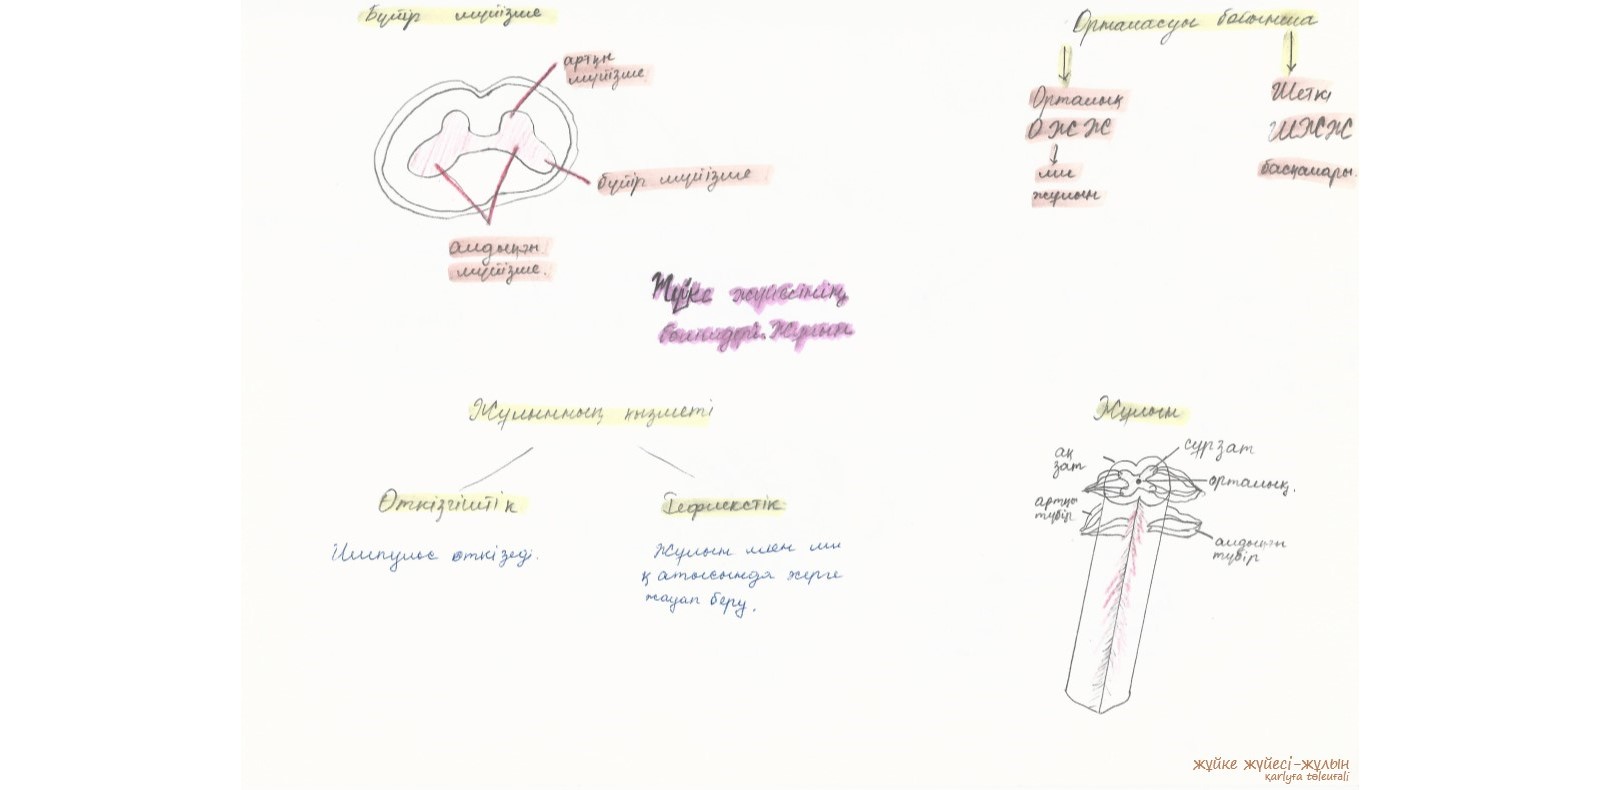 Бүйір мүйізше
артқы
мүйізше
бүйір мүйізше
алдыңғы
мүйізше.
Орналасуы бойынша
Орталық
ОЖЖ
ми
жұлын
Шеткі
ШЖЖ
басқалары.
Жүйке жүйесінің
бөлімдері. Жұлын
Жұлынның қызметі
Өткізгіштік
Импульс өткізеді.
Рефлекстік
Жұлын мен ми
қатысында жүрге
жауап беру.
Жұлын
ақ
зат
сұр зат
орталық.
артқы
түбір
алдыңғы
түбір
жүйке жүйесі-жұлын
қarlyғa төleuғali